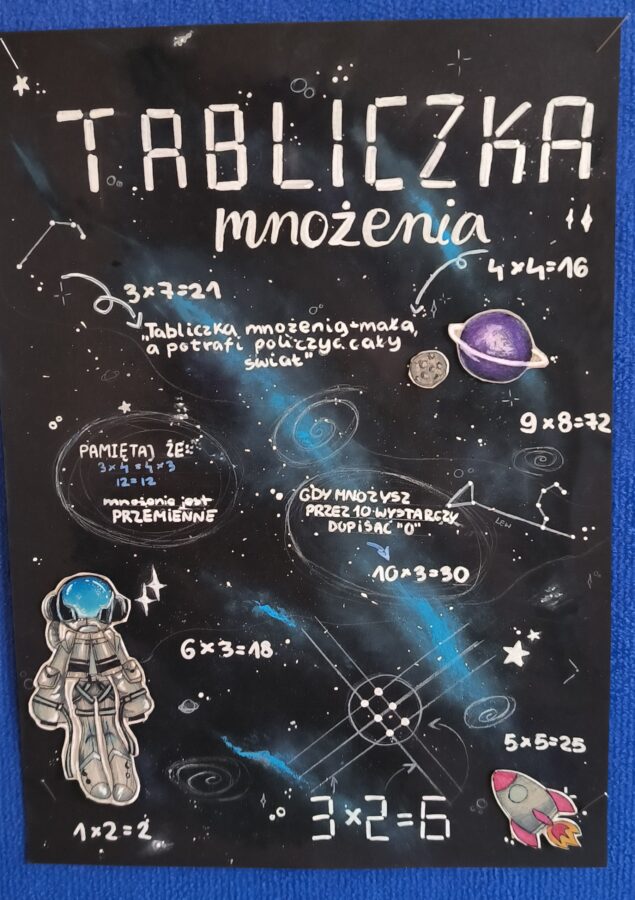 TABLICZKA
mnożenia
4×4=16
3×7=21
„Tabliczka mnożenia-mała,
a potrafi policzyć cały
świat"
9×8=72
PAMIĘTAJ ŻE:
3×4=4×3
12=12
mnożenie jest
PRZEMIENNE
GDY MNOŻYSZ
PRZEZ 10 WYSTARCZY
DOPISAĆ "0"
LEW
10×3=30
6×3=18
5×5=25
3×2=6
1×2=2